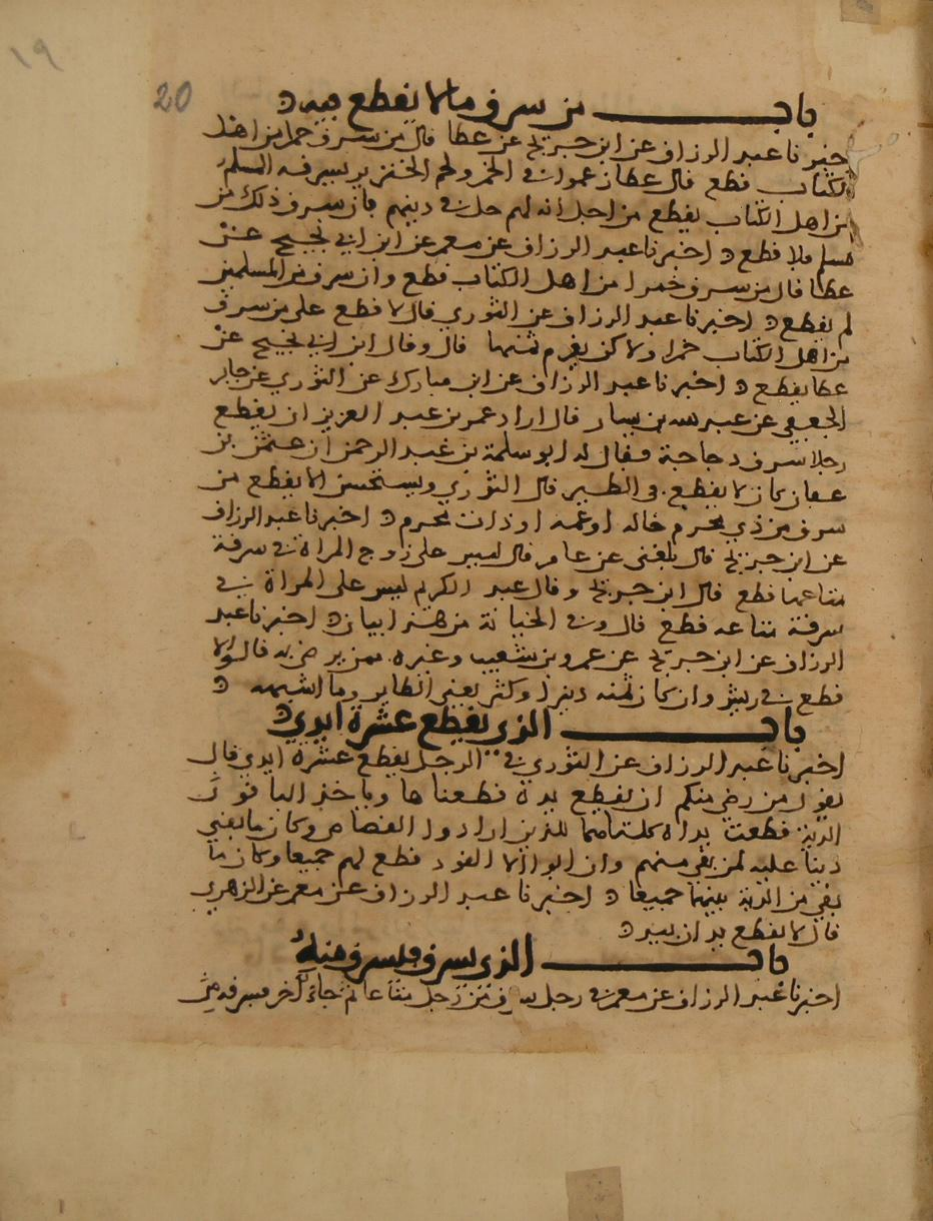 ١٩
20
باب من سرق ما لا يقطع فيه
اخبرنا عبد الرزاق عن ابن جريج عن عطا قال من سرق خمرا من اهل
الكتاب قطع قال عطا زعموا في الخمر ولحم الخنزير يسرقه المسلم
من اهل الكتاب يقطع من اجل انه لهم حل في دينهم فان سرق ذلك من
مسلم فلا قطع اخبرنا عبد الرزاق عن معمر عن ابن ابي نجيح عن
عطا قال من سرق خمرا من اهل الكتاب قطع وان سرق من المسلمين
لم يقطع اخبرنا عبد الرزاق عن الثوري قال لا قطع على من سرق
من اهل الكتاب خمرا ولاكن يغرم ثمنها قال وقال ابن ابي نجيح عن
عطا يقطع اخبرنا عبد الرزاق عن ابن مبارك عن الثوري عن جابر
الجعفي عن عبد لله بن يسار قال اراد عمر بن عبد العزيز ان يقطع
رجلا سرق دجاجة فقال له ابو سلمة بن عبد الرحمن ان عثمن بن
عفان كان لا يقطع في الطير قال الثوري ويستحسن الا يقطع من
سرق من ذي محرم خاله او عمه او ذات محرم اخبرنا عبد الرزاق
عن ابن جريج قال بلغني عن عامر قال ليس على زوج المراة في سرقة
متاعها قطع قال ابن جريج وقال عبد الكريم ليس على المراة في
سرقة متاعه قطع قال وفي الخيانة من هذا بيان اخبرنا عبد
الرزاق عن ابن جريج عن عمرو بن شعيب وغيره ممن يرضى به قالوا لا
قطع في ريش وان كان ثمنه دينرا وكثر يعني الطاير وما اشبهه
باب الذي يقطع عشرة ايدي
اخبرنا عبد الرزاق عن الثوري في الرجل يقطع عشرة ايدي قال
يقول من رضي منكم ان يقطع يده قطعناها وياخذ الباقون
الدية قطعت يداه كلتاهما للذين ارادوا القصاص وكان ما بقي
دينا عليه لمن بقي منهم وان ابوا الا القود قطع لهم جميعا وكان ما
بقي من الدية بينهما جميعا اخبرنا عبد الرزاق عن معمر عن الزهري
قال لا يقطع يدان بيد
باب الذي يسرق فيسرق منه
اخبرنا عبد الرزاق عن معمر في رجل سرق من رجل متاعا ثم جاء اخر فسرقه من